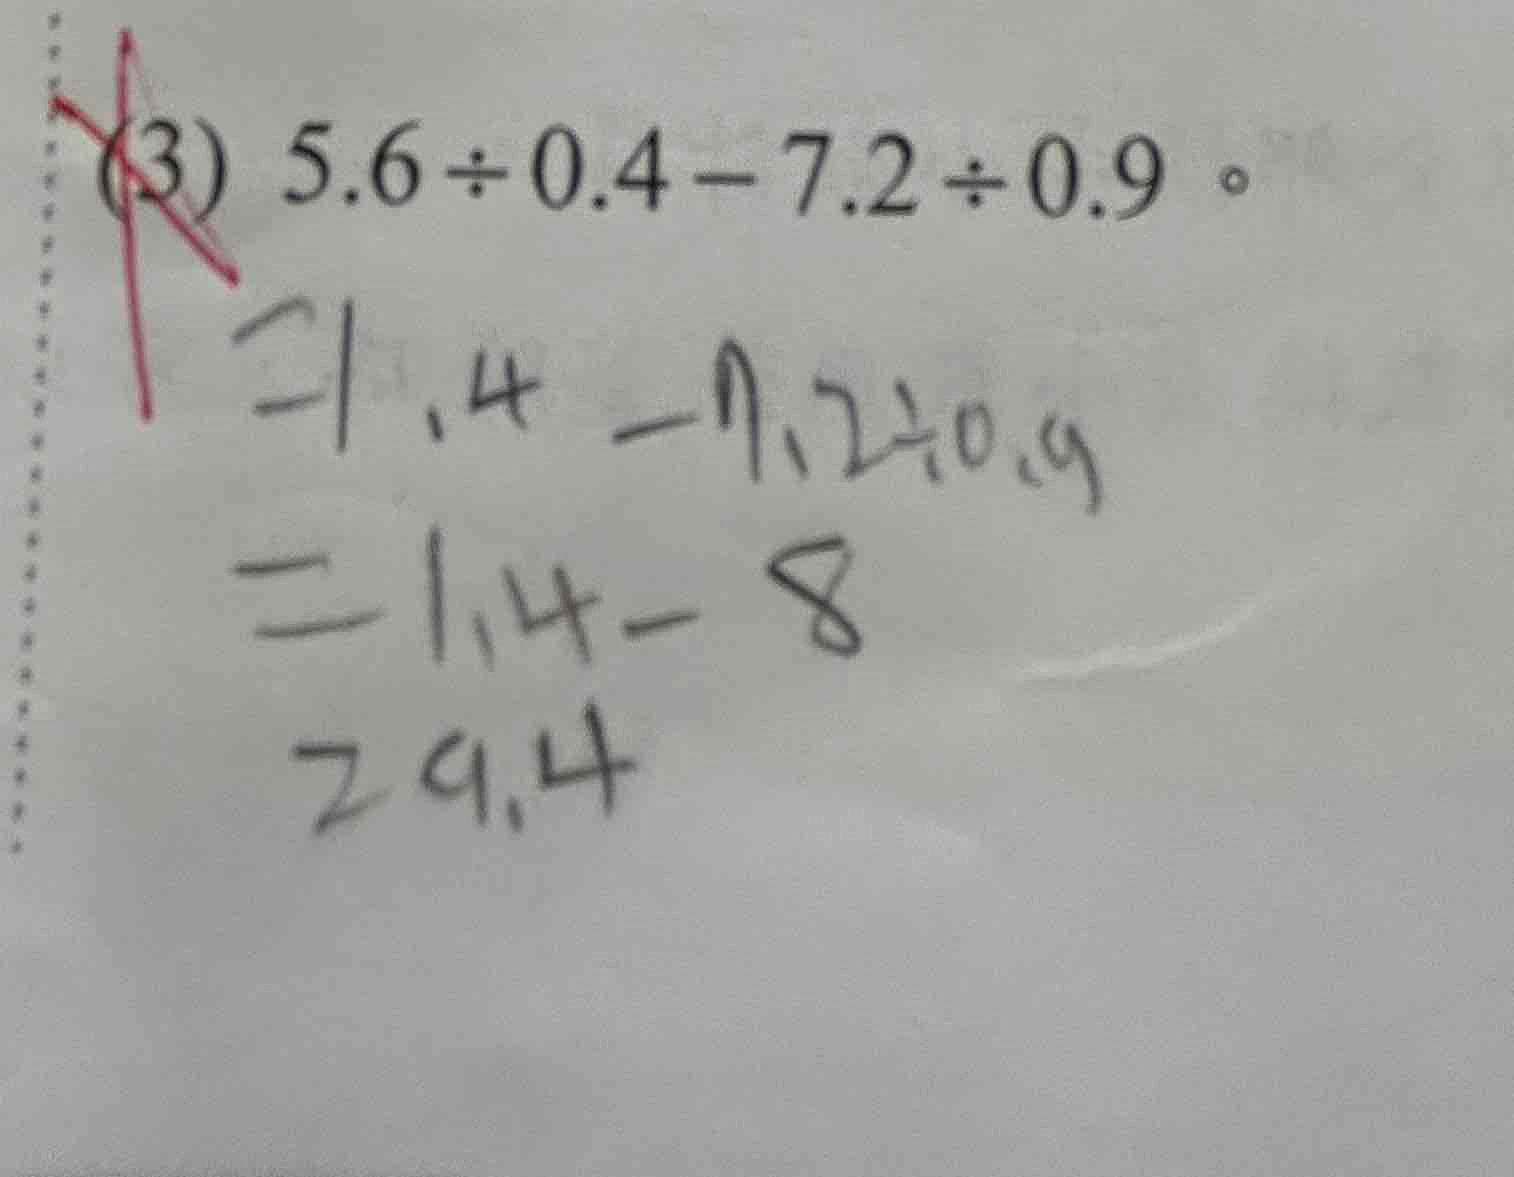 (3) 5.6÷0.4−7.2÷0.9。
=1.4−7.2÷0.9
=1.4−8
=9.4